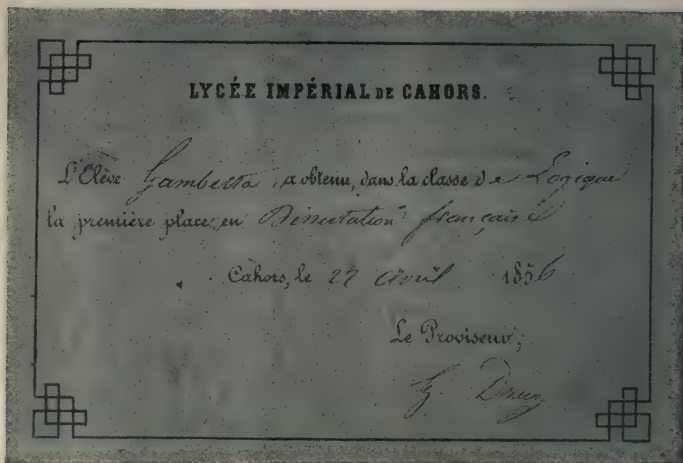 LYCÉE IMPÉRIAL DE CAHORS.
L'Élève Gambetta, a obtenu, dans la classe de Logique
la première place en Dissertation française
Cahors, le 27 avril 1856
Le Proviseur,